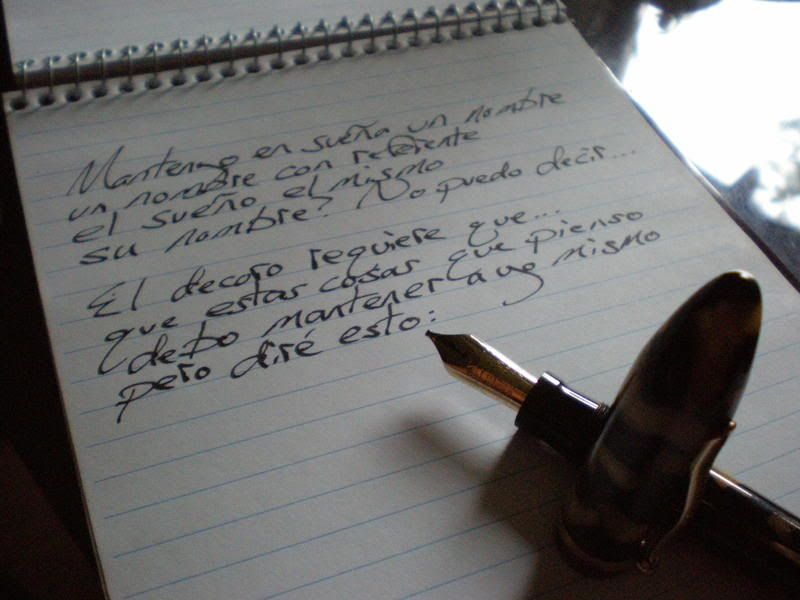 Mantengo en sueña un nombre
un nombre con referente
el sueño el mismo
su nombre? No puedo decir...
El decoro requiere que...
que estas cosas que pienso
debo mantener a yo mismo
pero diré esto: